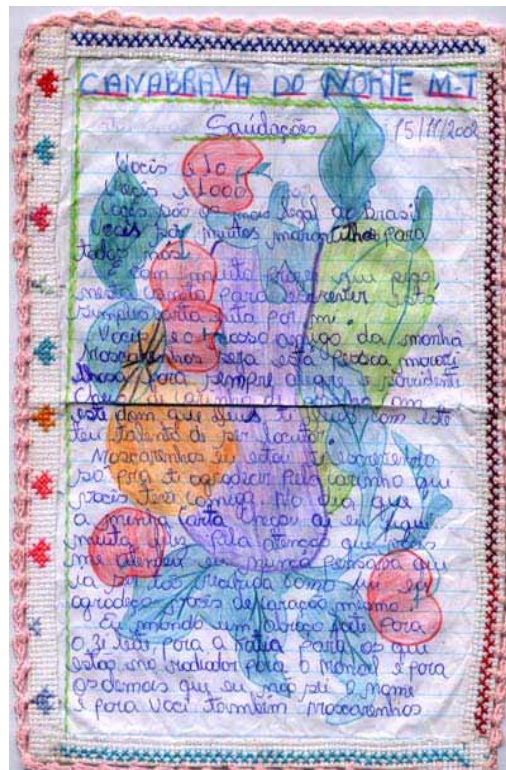 CANABRAVA DO NORTE M-T
Saúdações 15/11/2002
Vocis é 10
Vocis é 1000
Vocis são os mais legal do Brasil
Vocis são muitos maravilhos para
todos nós
é com muita prazer que pego
nesta caneta para escrever está
simples carta feita por mi.
Vocis é o nosso amigo da manhã
Mascarenhos seja esta pessoca maravi
lhosa para sempre alegre e sorridente
cheio de
este dom que Deus ti com este
teu talento de ser locutor.
Mascarenhos Zé estou ti escrevendo
só pra ti agradecer pela carinho que
vocis teve comigo no dia que
a minha carta chegou ai eu fiquei
muita pela atenção que vocis
mi atendeu eu nunca pensava que
ia ser tão como eu
agradeço vocis de caração mismo
Eu mando um abraço forte para
o Zé leite para a Katia para os que
estão no radiador para o e para
os demais que eu não sei o nome
e para voci também mascarenhos